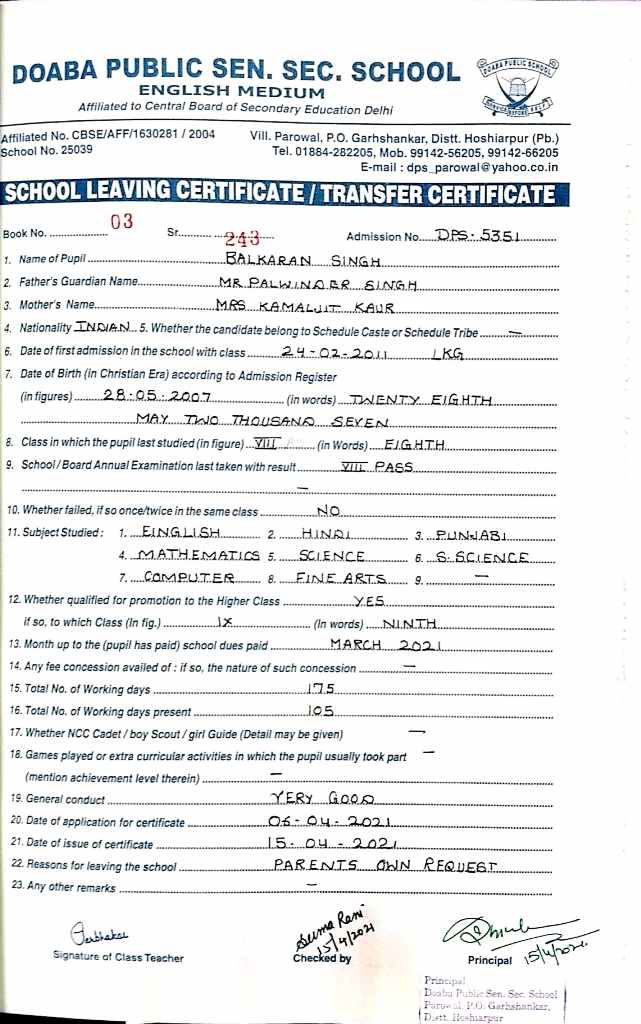 DOABA PUBLIC SEN. SEC. SCHOOL
ENGLISH MEDIUM
Affiliated to Central Board of Secondary Education Delhi
DOABA PUBLIC SCHOOL
Affiliated No. CBSE/AFF/1630281 / 2004
School No. 25039
Vill. Parowal, P.O. Garhshankar, Distt. Hoshiarpur (Pb.)
Tel. 01884-282205, Mob. 99142-56205, 99142-66205
E-mail : dps_parowal@yahoo.co.in
SCHOOL LEAVING CERTIFICATE / TRANSFER CERTIFICATE
Book No. 03 Sr. 243 Admission No. DPS-5351
1. Name of Pupil BALKARAN SINGH
2. Father's Guardian Name MR PALWINDER SINGH
3. Mother's Name MRS KAMALJIT KAUR
4. Nationality INDIAN 5. Whether the candidate belong to Schedule Caste or Schedule Tribe —
6. Date of first admission in the school with class 24-02-2011 LKG
7. Date of Birth (in Christian Era) according to Admission Register
(in figures) 28.05.2007 (in words) TWENTY EIGHTH
MAY TWO THOUSAND SEVEN
8. Class in which the pupil last studied (in figure) VIII (in Words) EIGHTH
9. School / Board Annual Examination last taken with result VIII PASS
—
10. Whether failed, if so once/twice in the same class NO
11. Subject Studied : 1. EINGLISH 2. HINDI 3. PUNJABI
4. MATHEMATICS 5. SCIENCE 6. S.SCIENCE
7. COMPUTER 8. FINE ARTS 9. —
12. Whether qualified for promotion to the Higher Class YES
if so, to which Class (In fig.) IX (In words) NINTH
13. Month up to the (pupil has paid) school dues paid MARCH 2021
14. Any fee concession availed of : if so, the nature of such concession —
15. Total No. of Working days 175
16. Total No. of Working days present 105
17. Whether NCC Cadet / boy Scout / girl Guide (Detail may be given) —
18. Games played or extra curricular activities in which the pupil usually took part —
(mention achievement level therein) —
19. General conduct VERY GOOD
20. Date of application for certificate 06-04-2021
21. Date of issue of certificate 15-04-2021
22. Reasons for leaving the school PARENTS OWN REQUEST
23. Any other remarks —
Prabhakar
Signature of Class Teacher
Suma Rani
15/4/2021
Checked by
Principal 15/4/2021
Principal
Doaba Public Sen. Sec. School
Parowal, P.O. Garhshankar,
Distt. Hoshiarpur